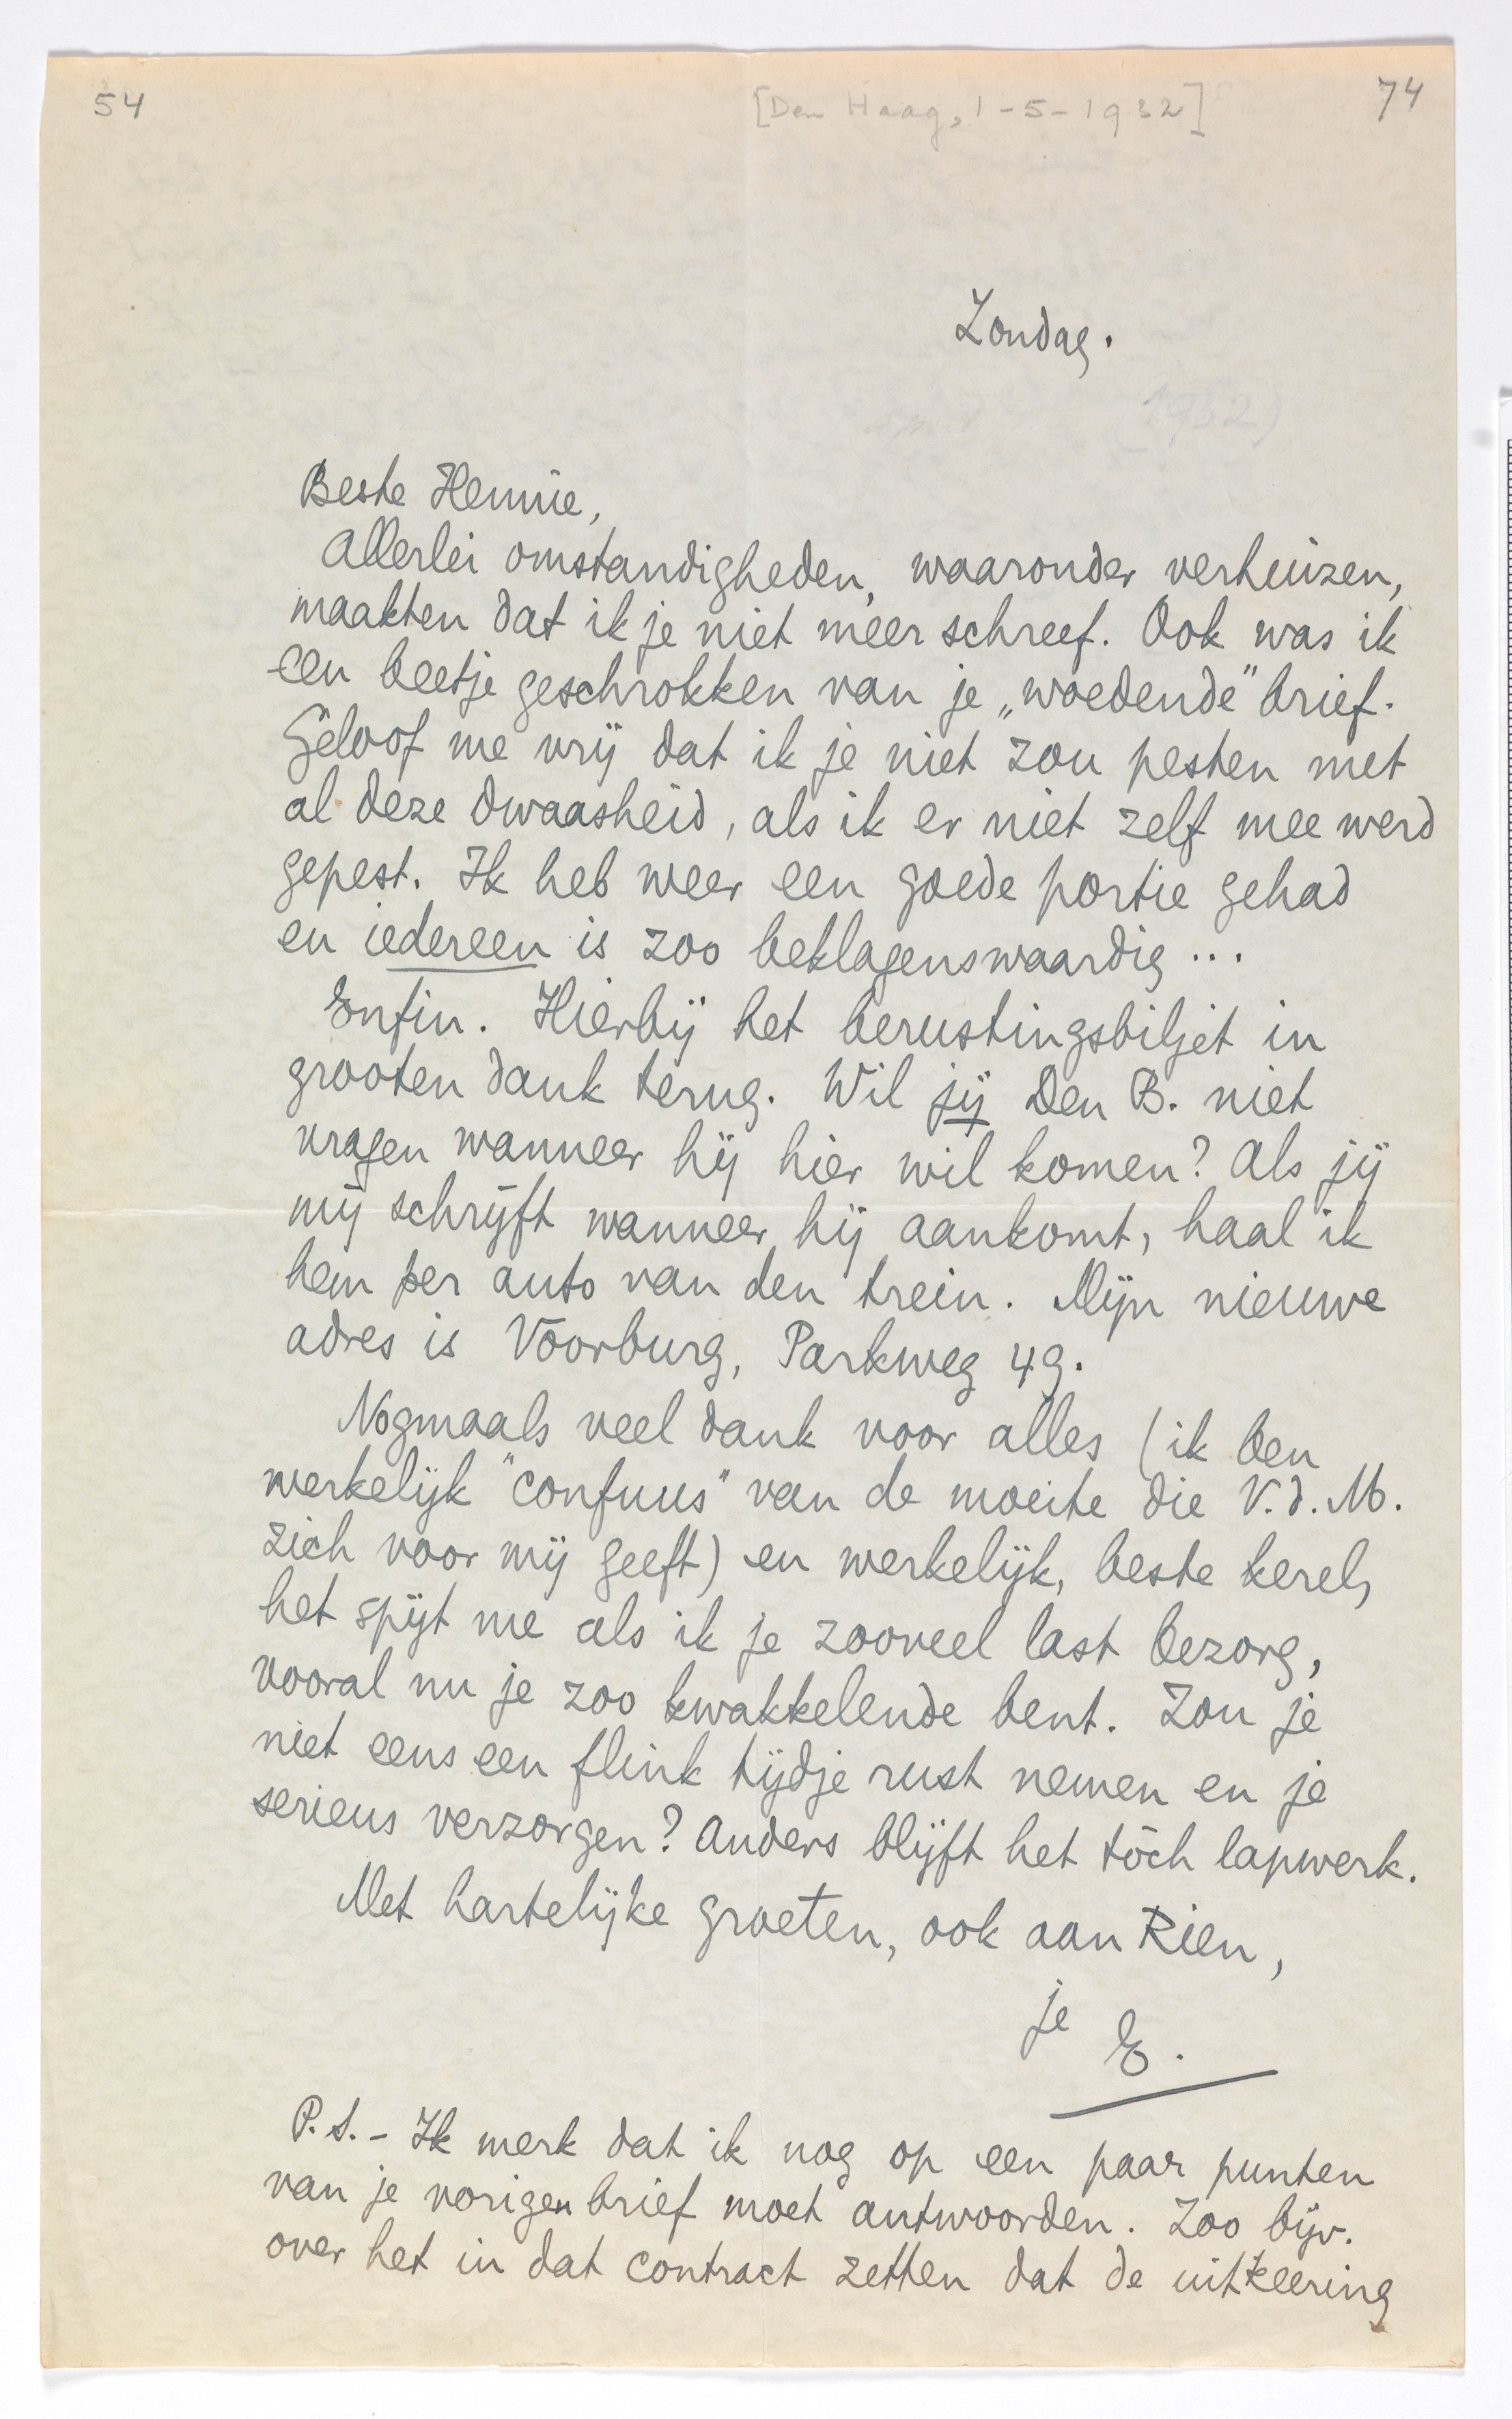 54 [Den Haag, 1-5-1932] 74
Zondag.
(1932)
Beste Hennie,
Allerlei omstandigheden, waaronder verhuizen,
maakten dat ik je niet meer schreef. Ook was ik
een beetje geschrokken van je „woedende” brief.
Geloof me vrij dat ik je niet zou pesten met
al deze dwaasheid, als ik er niet zelf mee werd
gepest. Ik heb weer een goede portie gehad
en iedereen is zoo beklagenswaardig ...
Enfin. Hierbij het berustingsbiljet in
grooten dank terug. Wil jij Den B. niet
vragen wanneer hij hier wil komen? Als jij
mij schrijft wanneer hij aankomt, haal ik
hem per auto van den trein. Mijn nieuwe
adres is Voorburg, Parkweg 49.
Nogmaals veel dank voor alles (ik ben
werkelijk "confuus" van de moeite die V.d.M.
zich voor mij geeft) en werkelijk, beste kerel,
het spijt me als ik je zooveel last bezorg,
vooral nu je zoo kwakkelende bent. Zou je
niet eens een flink tijdje rust nemen en je
serieus verzorgen? Anders blijft het tòch lapwerk.
Met hartelijke groeten, ook aan Rien,
je E.
P.S. - Ik merk dat ik nog op een paar punten
van je vorigen brief moet antwoorden. Zoo bijv.
over het in dat contract zetten dat de uitkeering